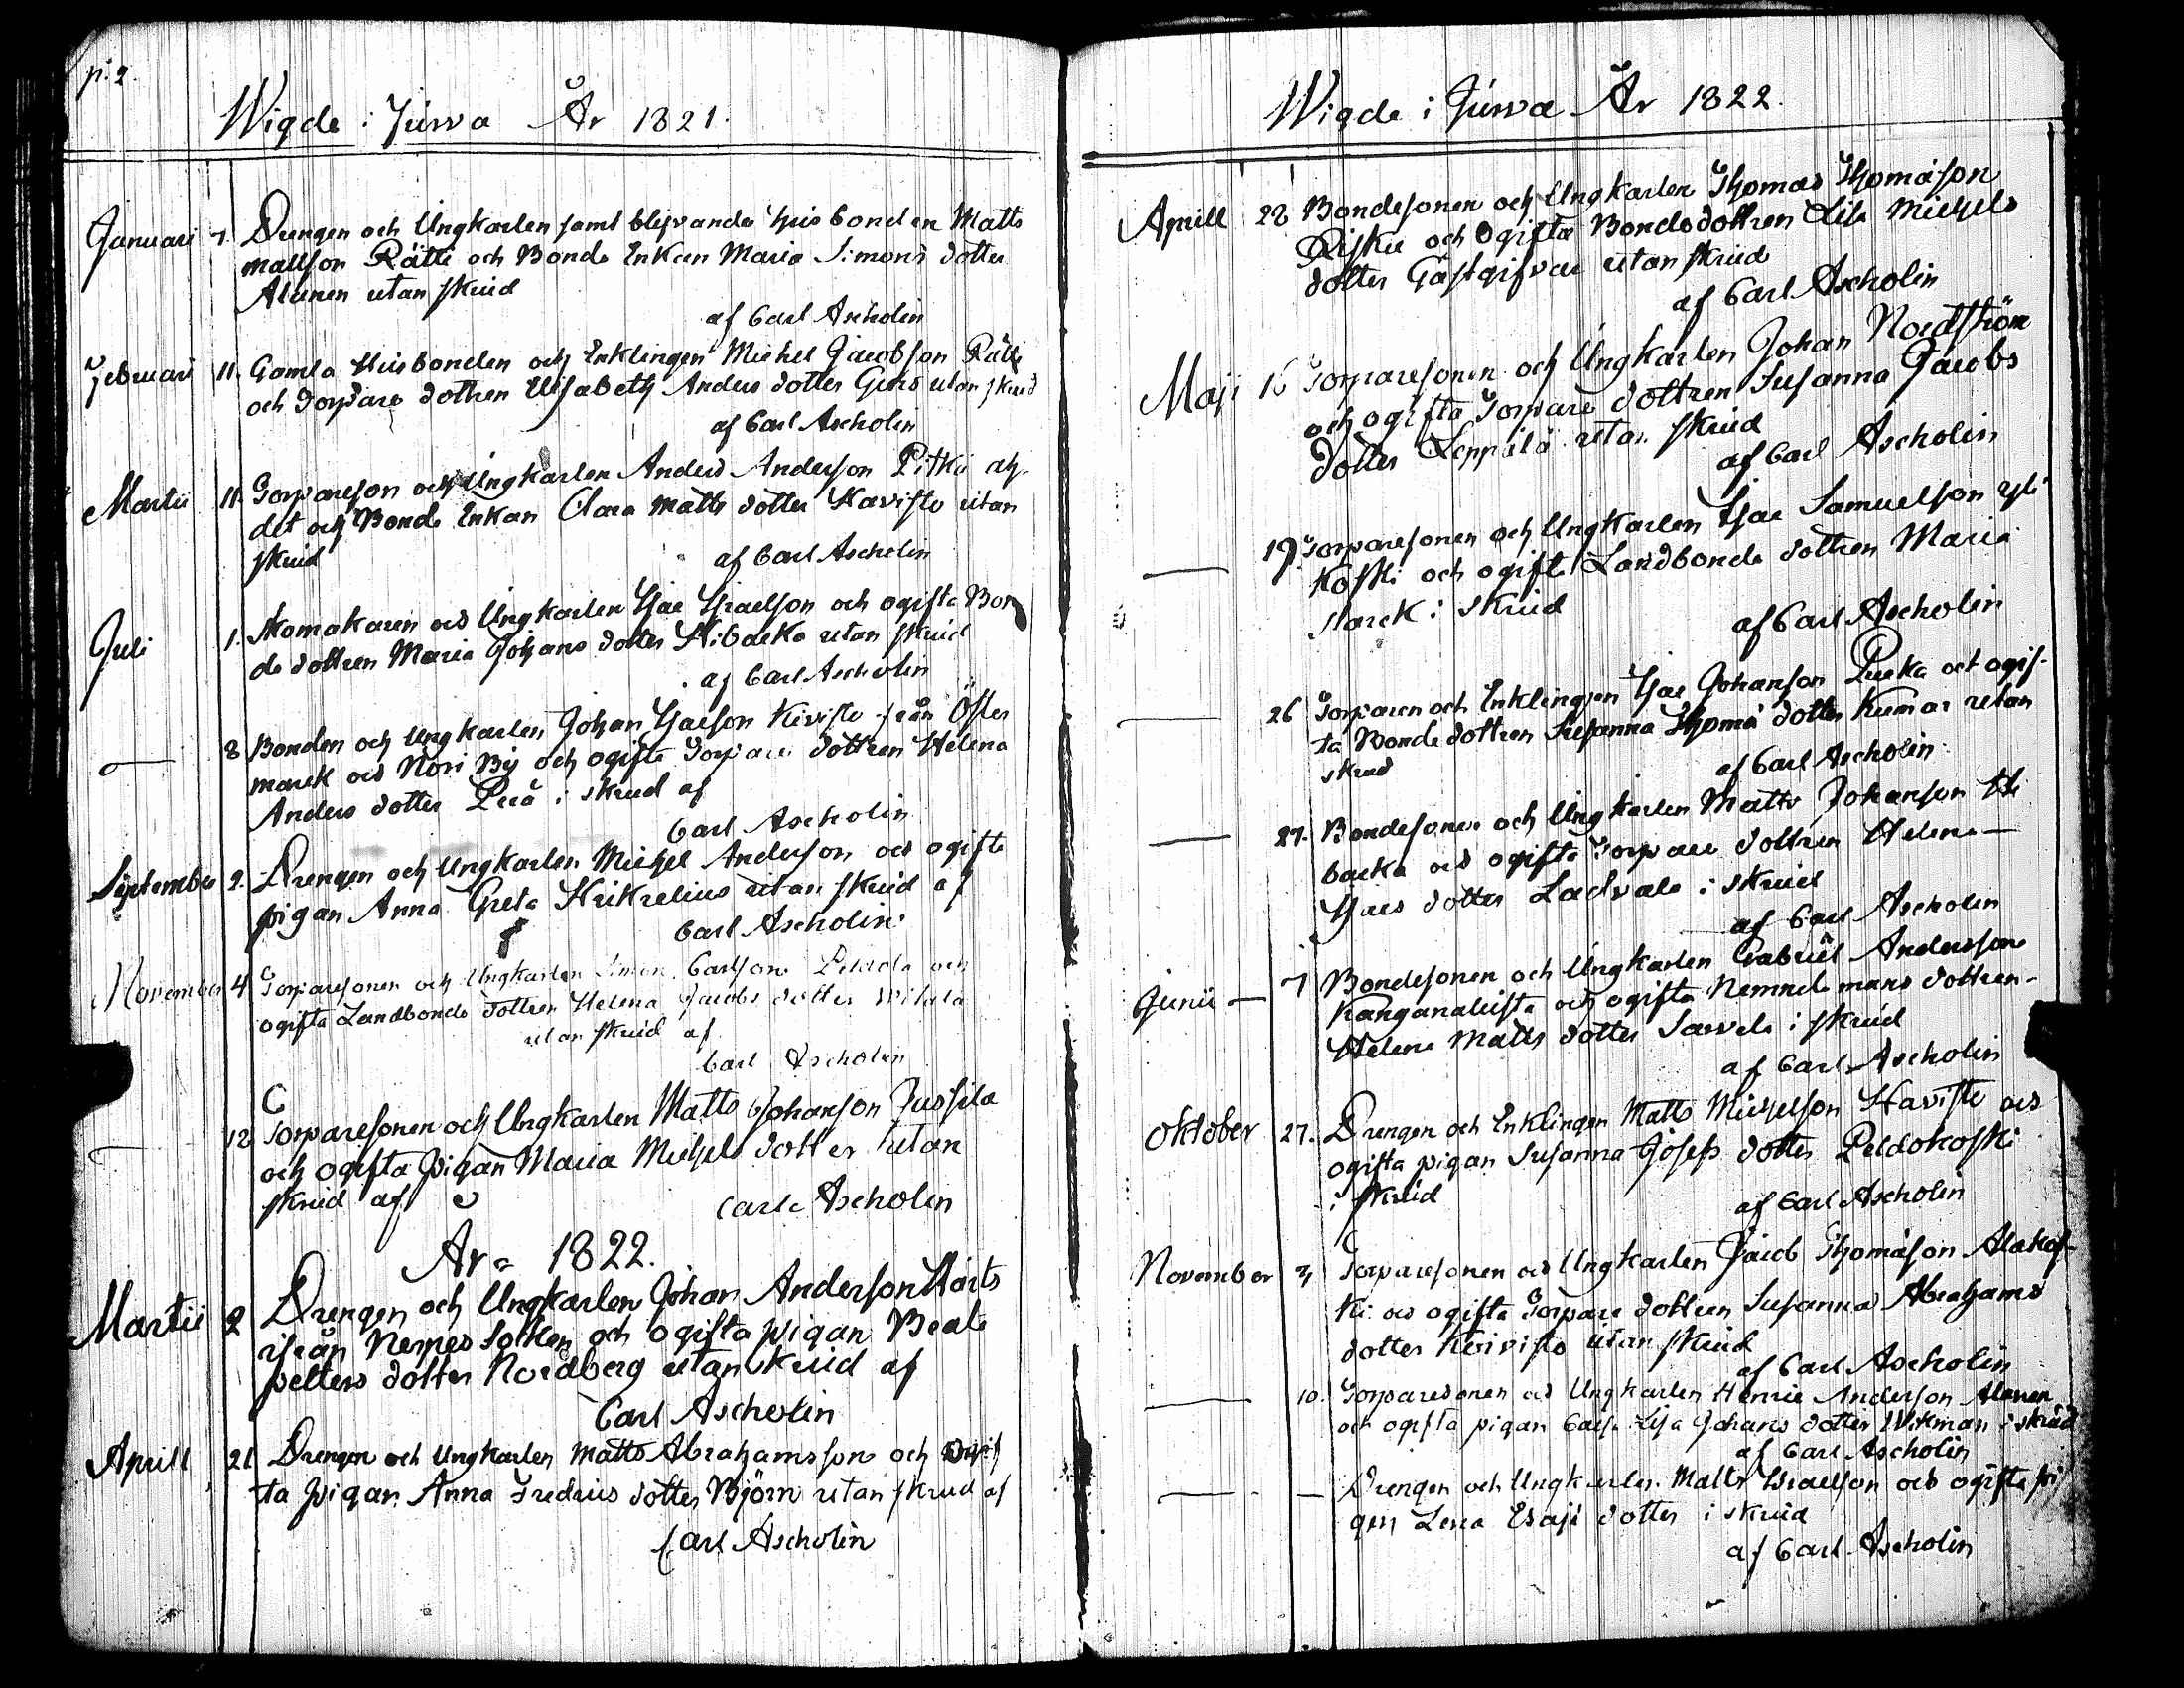 p: 2.
Wigde i Jurva År 1821.
Januari 7. Drengen och Ungkarlen samt blifvande husbonden Matts
Mattson Rätti och Bonde Enkan Maria Simons dotter
Alanen utan skrud
af Carl Ascholin
Februari 11. Gamla Husbonden och Enklingen Michel Jacobson Rätti
och Torpare dottren Elisabeth Anders dotter utan skrud
af Carl Ascholin
Martii 11. Torpareson och Ungkarlen Anders Anderson Pitkä
det och Bonde Enkan Clara Matts dotter Havisto utan
skrud
af Carl Ascholin
Juli 1. Skomakaren och Ungkarlen Isac Israelson och ogifta Bon
de dottren Maria Johans dotter Hibacka utan skrud
af Carl Ascholin
— 8 Bonden och Ungkarlen Johan Isacson Kivisto från Öster
mark och Nori By och ogifta Torpare dottren Helena
Anders dotter Perä i skrud af
Carl Ascholin
September 2. Drengen och Ungkarlen Michel Anderson och ogifta
pigan Anna Greta utan skrud af
Carl Ascholin
November 4 Torparesonen och Ungkarlen Simon Carlson och
ogifta Landbonde dottren Helena Jacobs dotter
utan skrud af
Carl Ascholin
— 12 Torparesonen och Ungkarlen Matts Johanson Jussila
och ogifta pigan Maria Michels dotter utan
skrud af
Carl Ascholin
År 1822.
Martii 2 Drengen och Ungkarlen Johan Anderson
ifrån Nerpes Socken och ogifta pigan Beata
petters dotter Nordberg utan skrud af
Carl Ascholin
Aprill 21 Drengen och Ungkarlen Matts Abrahamsson och ogif
ta pigan Anna Fredrics dotter Björn utan skrud af
Carl Ascholin
Wigde i Jurva År 1822.
Aprill 22 Bondesonen och Ungkarlen Thomas Thomason
Risku och Ogifta Bondedottren Lisa Michels
dotter Gästgifvar utan skrud
af Carl Ascholin
Maji 16 Torparesonen och Ungkarlen Johan Nordström
och ogifta Torpare dottren Susanna Jacobs
dotter Leppälä utan skrud
af Carl Ascholin
— 19. Torparesonen och Ungkarlen Isac Samuelson Yli
koski och ogifta Landbonde dottren Maria
Stark i skrud
af Carl Ascholin
— 26 Torparen och Enklingen Isac Johanson och ogif-
ta Bonde dottren Susanna Thoma dotter Kumar utan
skrud
af Carl Ascholin
— 27. Bondesonen och Ungkarlen Matts Johanson Hi
backa och ogifta Torpare dottren Helena —
Isacs dotter Ladvala i skrud
af Carl Ascholin
Junii — 7 Bondesonen och Ungkarlen Gabriel Andersson
och ogifta Nemndemans dottren
Helena Matts dotter Sarvela i skrud
af Carl Ascholin
Oktober 27. Drengen och Enklingen Matts Michelson Havisto och
ogifta pigan Susanna Josefs dotter Peldokoski
i skrud
af Carl Ascholin
November 3 Torparesonen och Ungkarlen Jacob Thomason Alakos-
ki och ogifta Torpare dottren Susanna Abrahams
dotter Koivisto utan skrud
af Carl Ascholin
— 10. Torparesonen och Ungkarlen Henric Anderson Alanen
och ogifta pigan Caisa Lisa Johans dotter Wikman i skrud
af Carl Ascholin
— — Drengen och Ungkarlen Matts Israelson och ogifta pi
gan Lena Esaji dotter i skrud
af Carl Ascholin